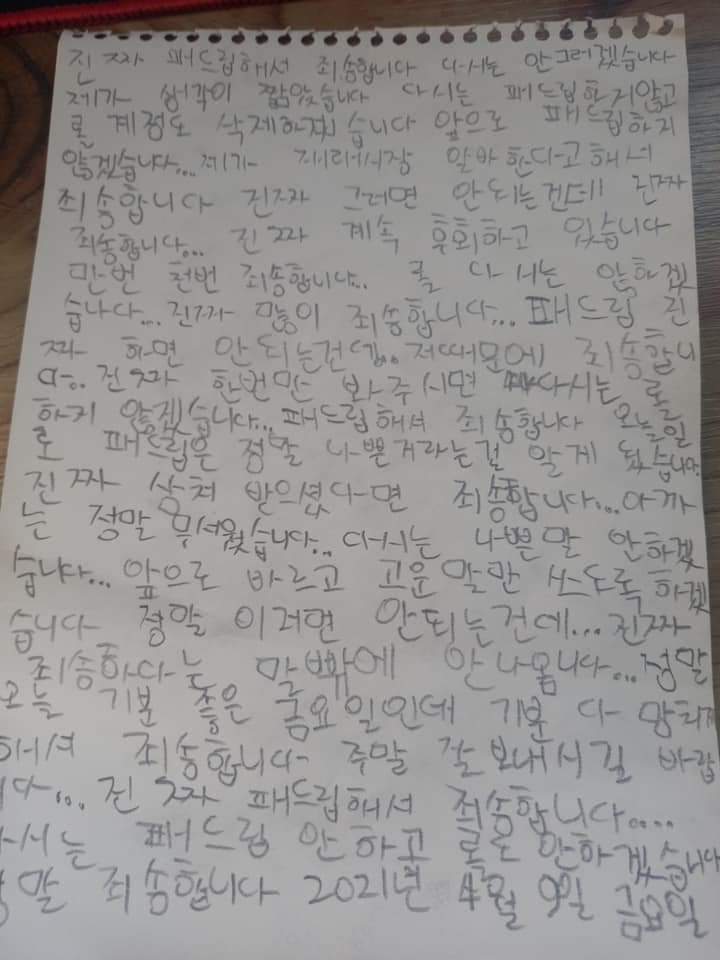 진짜 패드립해서 죄송합니다 다시는 안그러겠습니다
제가 생각이 짧았습니다 다시는 패드립하지않고
롤 계정도 삭제하겠습니다 앞으로 패드립하지
않겠습니다...제가 알바한다고해서
죄송합니다 진짜 그러면 안되는건데 진짜
죄송합니다... 진짜 계속 후회하고 있습니다
만번 천번 죄송합니다.. 롤 다시는 않하겠
습니다...진짜 많이 죄송합니다... 패드립 진
짜 하면 안되는건데.. 저때문에 죄송합니
다.. 진짜 한번만 봐주시면 다시는 롤
하지 않겠습니다...패드립해서 죄송합니다 오늘일
로 패드립은 정말 나쁜거라는걸 알게 됐습니다
진짜 상처 받으셨다면 죄송합니다...아까
는 정말 무서웠습니다...다시는 나쁜말 안하겠
습니다... 앞으로 바르고 고운말만 쓰도록하겠
습니다 정말 이러면 안되는건데... 진짜
죄송하다는 말빢에 안나옵니다...정말
오늘 기분 좋은 금요일인데 기분 다 망치게
해서 죄송합니다 주말 잘보내시길 바랍
니다... 진짜 패드립해서 죄송합니다....
다시는 패드립 안하고 롤도 안하겠습니다
정말 죄송합니다 2021년 4월 9일 금요일